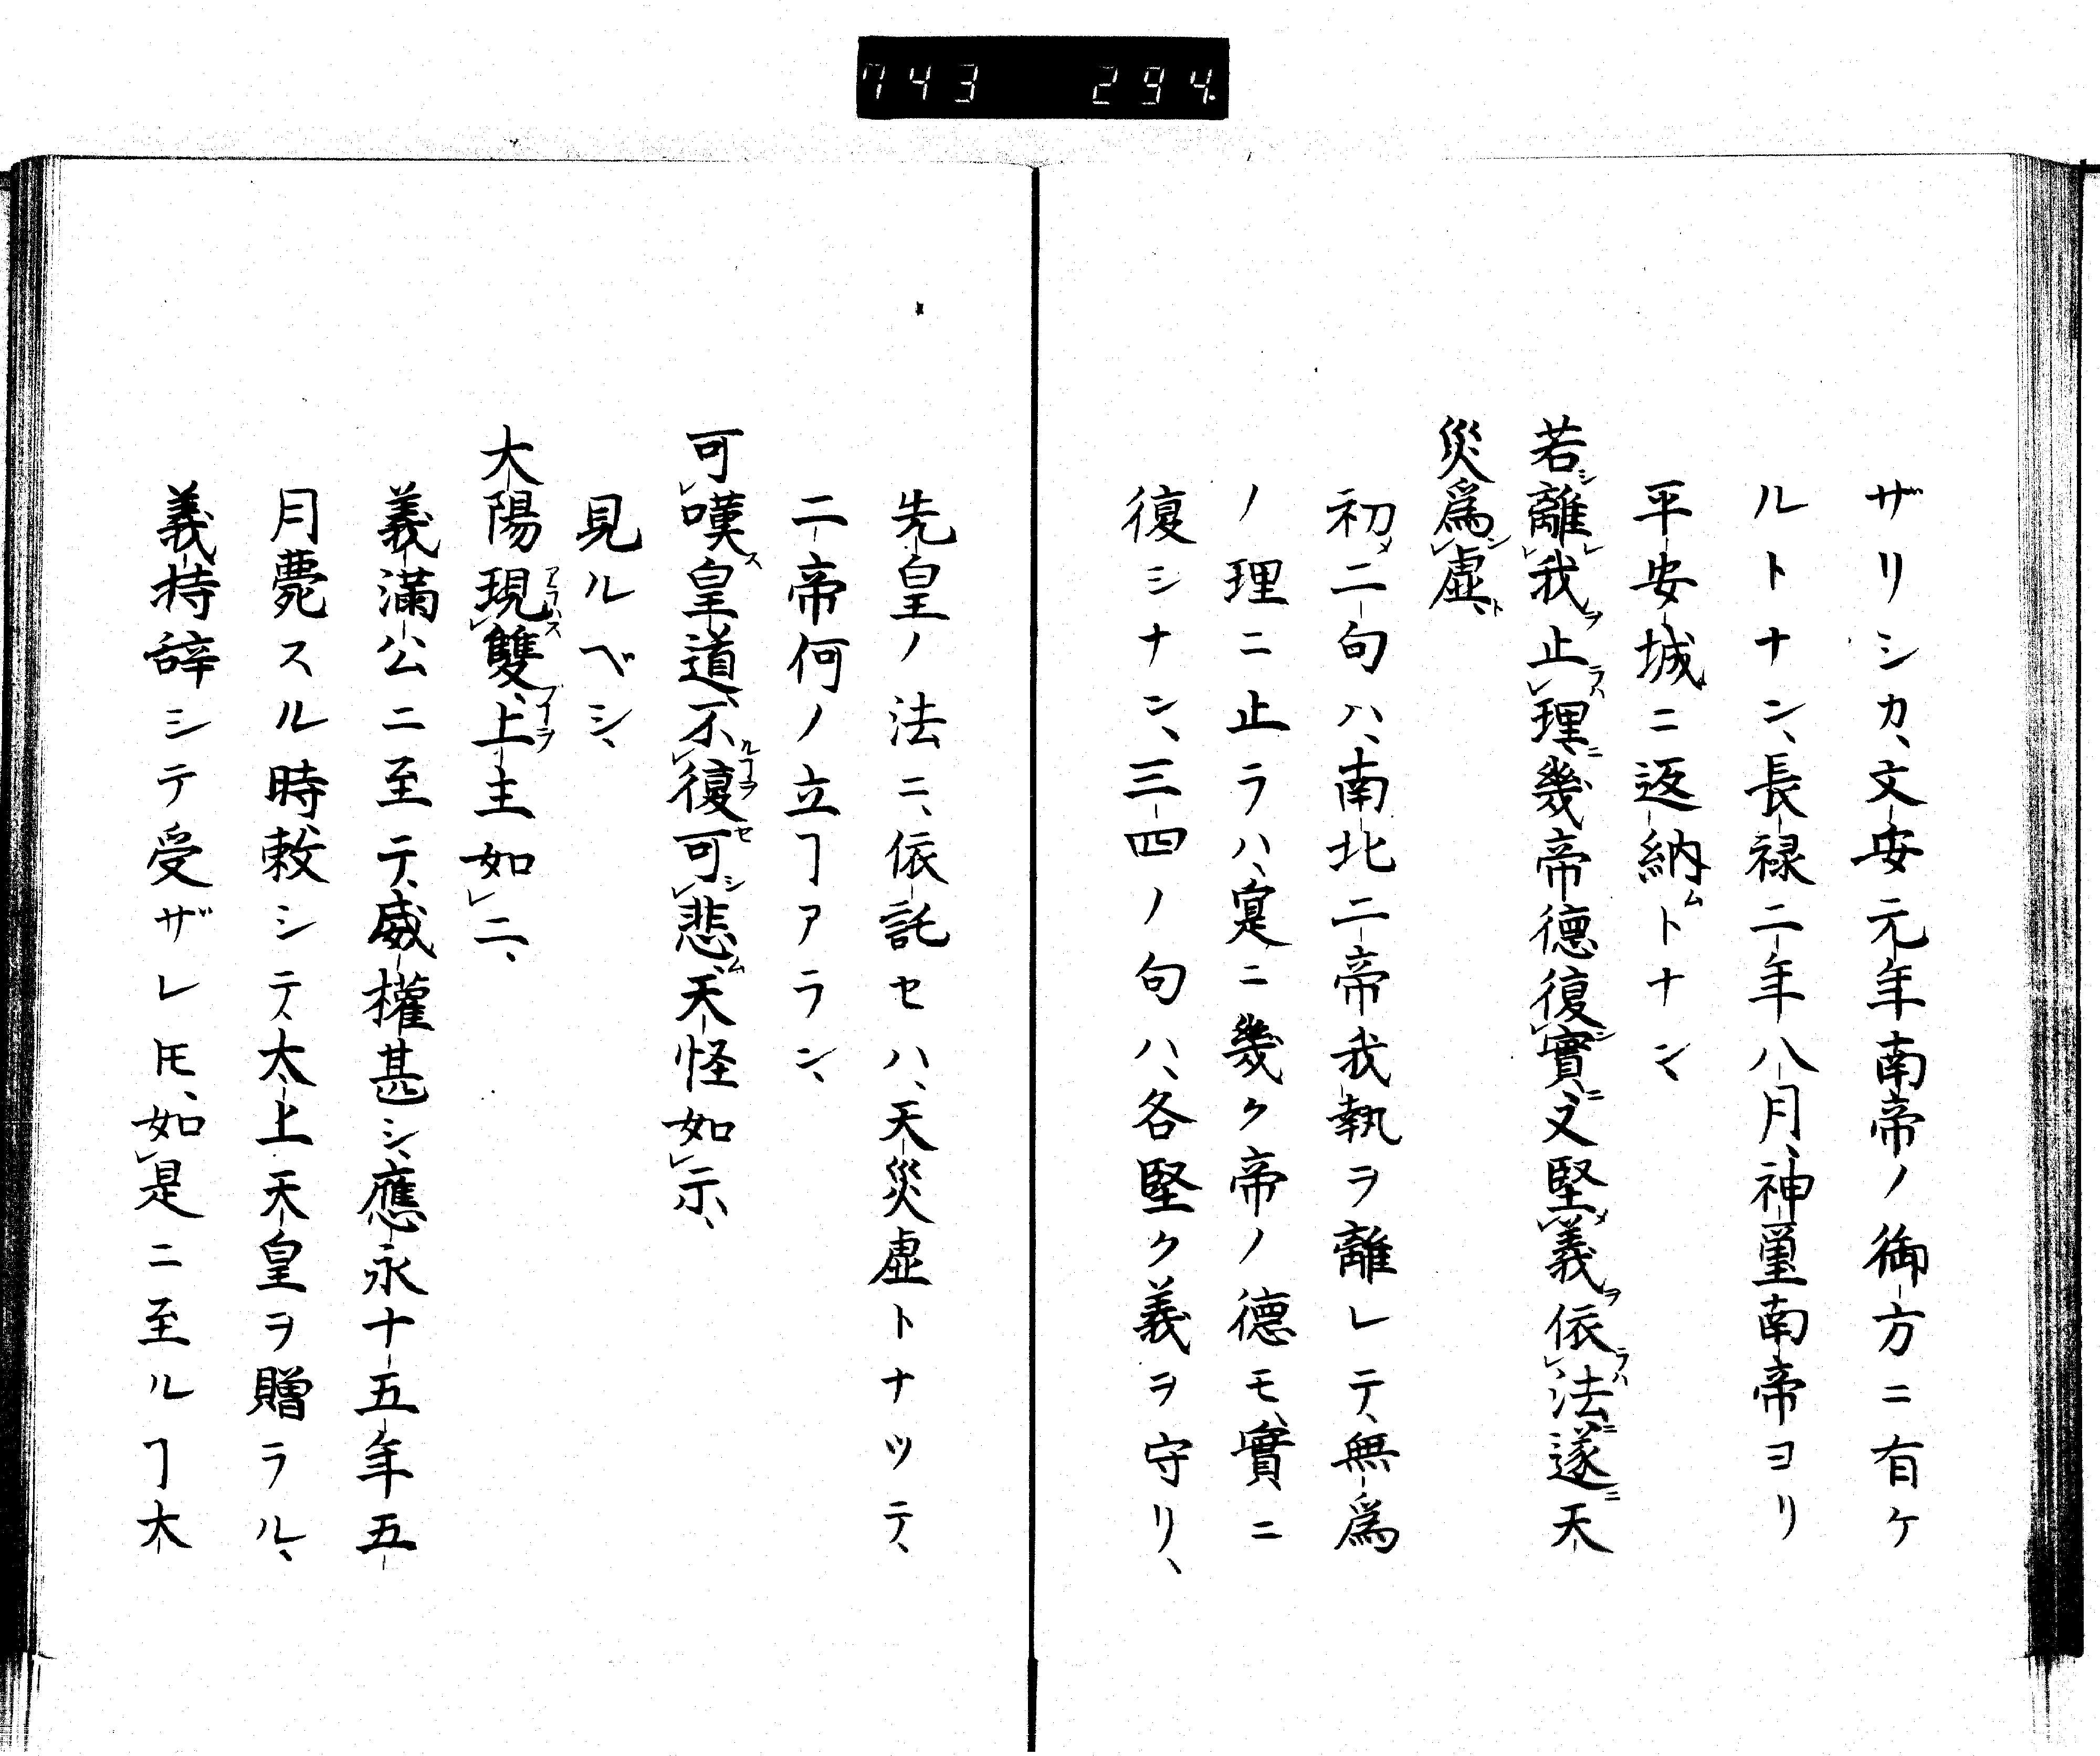 743 294.
ザリシカ、文安元年南帝ノ御方ニ有ケ
ルトナン、長禄二年八月、神璽南帝ヨリ
平安城ニ返納ムトナン、
若シ離レ我ヲ止ラハ理ニ幾帝徳復シ實ニ又堅メ義ヲ依ラハ法ニ遂ニ天
災爲ン虚ト、
初メ二句ハ、南北二帝我執ヲ離レテ、無爲
ノ理ニ止ラハ、寔ニ幾ク帝ノ德モ、實ニ
復シナン、三四ノ句ハ、各堅ク義ヲ守リ、
先皇ノ法ニ、依託セハ、天災虚トナツテ、
二帝何ノ立ヿアラン、
可レ嘆ス皇道不ルヿヲ復セ可シ悲ム天怪如レ示、
見ルベシ、
大陽現アラハス雙、上主如レ二、
義滿公ニ至テ、威權甚シ、應永十五年五
月薨スル時、敕シテ、太上天皇ヲ贈ラル、
義持辞シテ受ザレ𪜈、如レ是ニ至ルヿ大